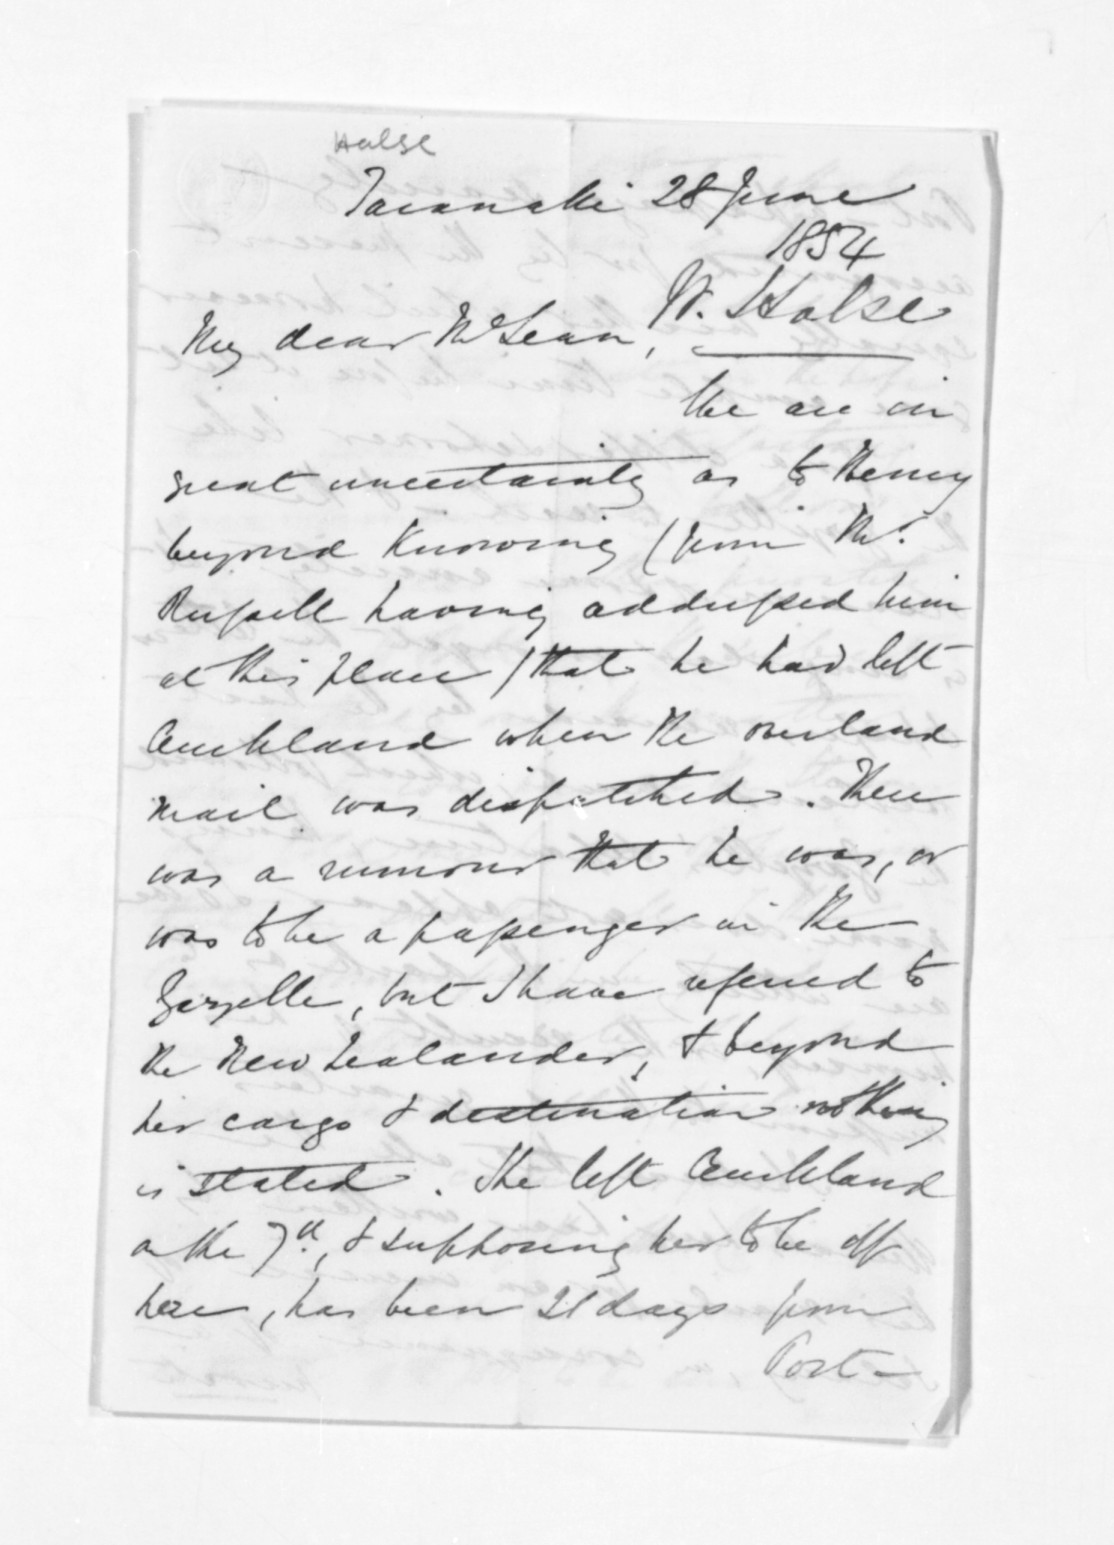 Halse
Taranaki 28 June
1854
W. Halse
My dear McLean,
We are in
great uncertainty as to Henry
beyond knowing (from Mr.
Russell having addressed him
at this place) that he had left
Auckland when the overland
mail was dispatched. There
was a rumour that he was, or
was to be a passenger in the
Gazelle, but I have referred to
the New Zealander, & beyond
her cargo & destination nothing
is stated. She left Auckland
on the 7th, & supposing her to be off
here, has been 21 days from
Port